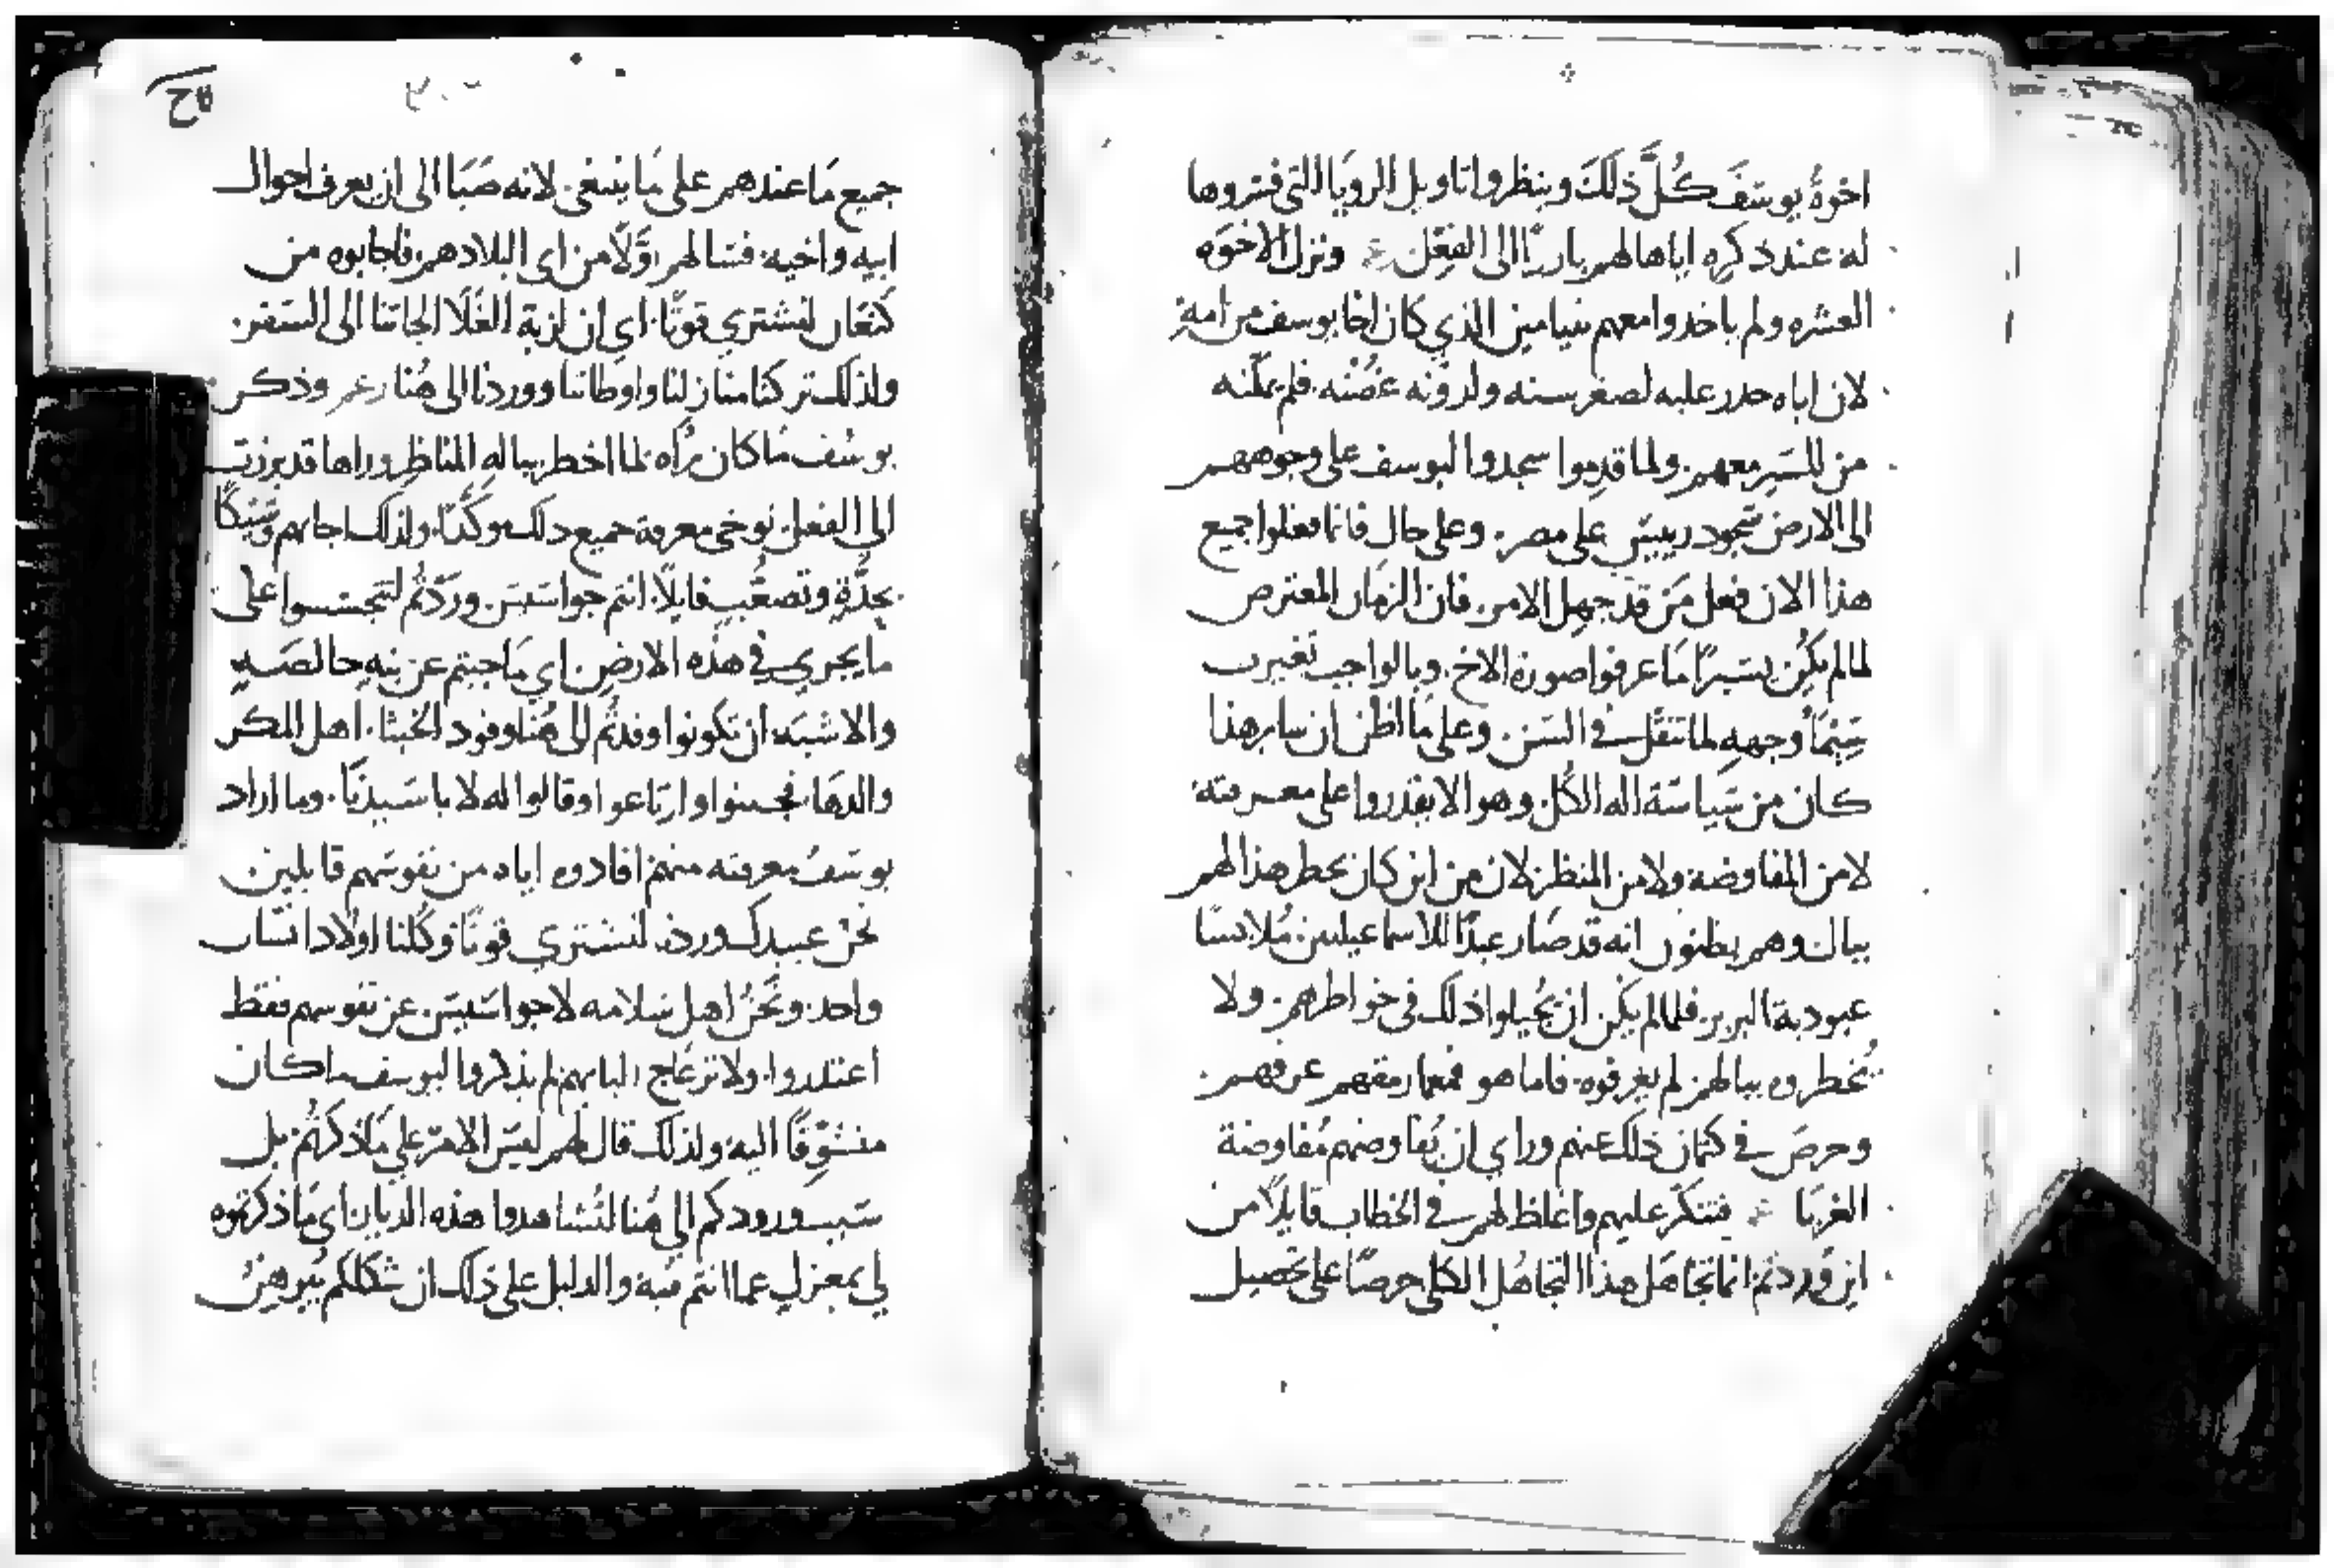 اخوةُ يوسَفَ كُلَّ ذلكَ وينظروا تاويل الرويا التى فسروها
له عند ذكره اياها لهم بارزًا الى الفِعْل ونزل الاخوَه
العشره ولم ياخدوا معهم بنيامين الذي كان اخا يوسف من امهِ
لان اباه حدر عليه لصغر سنه ولدونه غصنه فلم يمكنه
من المسَير معهم ولما قدموا سجدوا ليوسف على وجوههم
الى الارض سجود رييسَ على مصر وعلى حال فانما فعلوا جميع
هذا الان فعل مَن قد جهل الامر فان الزمان المعترض
لما لم يكُن يسَيرًا ما عرفوا صورة الاخ وبالواجب تغيرت
سِيمَا وجههِ لما تنقّل في السَن وعلى ما اظن ان ساير هذا
كان من سَياسَة اله الكُل وهو الا يقدروا على معرفته
لا من المفاوضة ولا من المنظر لان من اين كان يخطر هذا لهم
ببال وهم يظنون انه قد صَار عبدًا للاسماعيليين مُلابسًا
عبودية البربر فلما لم يكن ان يُخيلوا ذلك في خواطرهم ولا
يُخطروه ببالهم لم يعرفوه فاما هو فمعما رمقهم عرفهم
وحرصَ في كتمان ذلك عنهم وراي ان يُفاوضهم مُفاوضة
الغربَا فتنكّر عليهم واغلظ لهم في الخطاب قايلاً من
اين وَردتم انما تجاهَل هذا التجاهُل الكلي حرصًا على تحصيل
جميع مَا عندهم على مَا ينبغى لانه صَبَا الى ان يعرف احوال
ابيه واخيه فسَالهم اوَّلاً من اى البلاد هم فاجابوه من
كنعَان لنشتري قوتًا اي ان لزبة الغَلا الجاتنا الى السَفر
ولذلك تركنا منازلنا واوطاننا ووردنا الى هُنا وذكر
يوسُف مَا كان يَراه لما اخطر بباله المناظر وراها قد برزت
الى الفعل توخى معرفة جميع دلك وكَدًّا ولذلك اجابهم وشيكًا
بحدَّةٍ وتصعُّبٍ قايلاً انتم جواسَيسَ وَردتُم لتجسسوا على
ما يجري في هذه الارض اي مَا جيتم عن نيهٍ خالصَهٍ
والاشبَه ان تكونوا وفدتُم الى هُنا وفود الخبثا اهل المكر
والدهَا فجبنوا وارتاعوا وقالوا له لا يا سَيدنَا وما اراد
يوسَفُ معرفته منهم افادوه اياه من نفوسَهم قايلين
نحنُ عبيدك وردنا لنشتري قوتًا وكُلنا اولاد انسَان
واحد ونَحنُ اهل سَلامه لا جواسَيسَ عن نفوسهم فقط
اعتدروا ولانزعَاج البابهم لم يذكروا ليوسف ما كان
متشوّقًا اليه ولذلك قال لهم ليسَ الامر على مَا ذكرتُم بل
سَبب ورودكم الي هُنا لتُشاهدوا هذه الديار اي مَا ذكرتموه
لي بمعزلٍ عما انتم فيه والدليل على ذلك ان شَكلكم يُبرهنُ